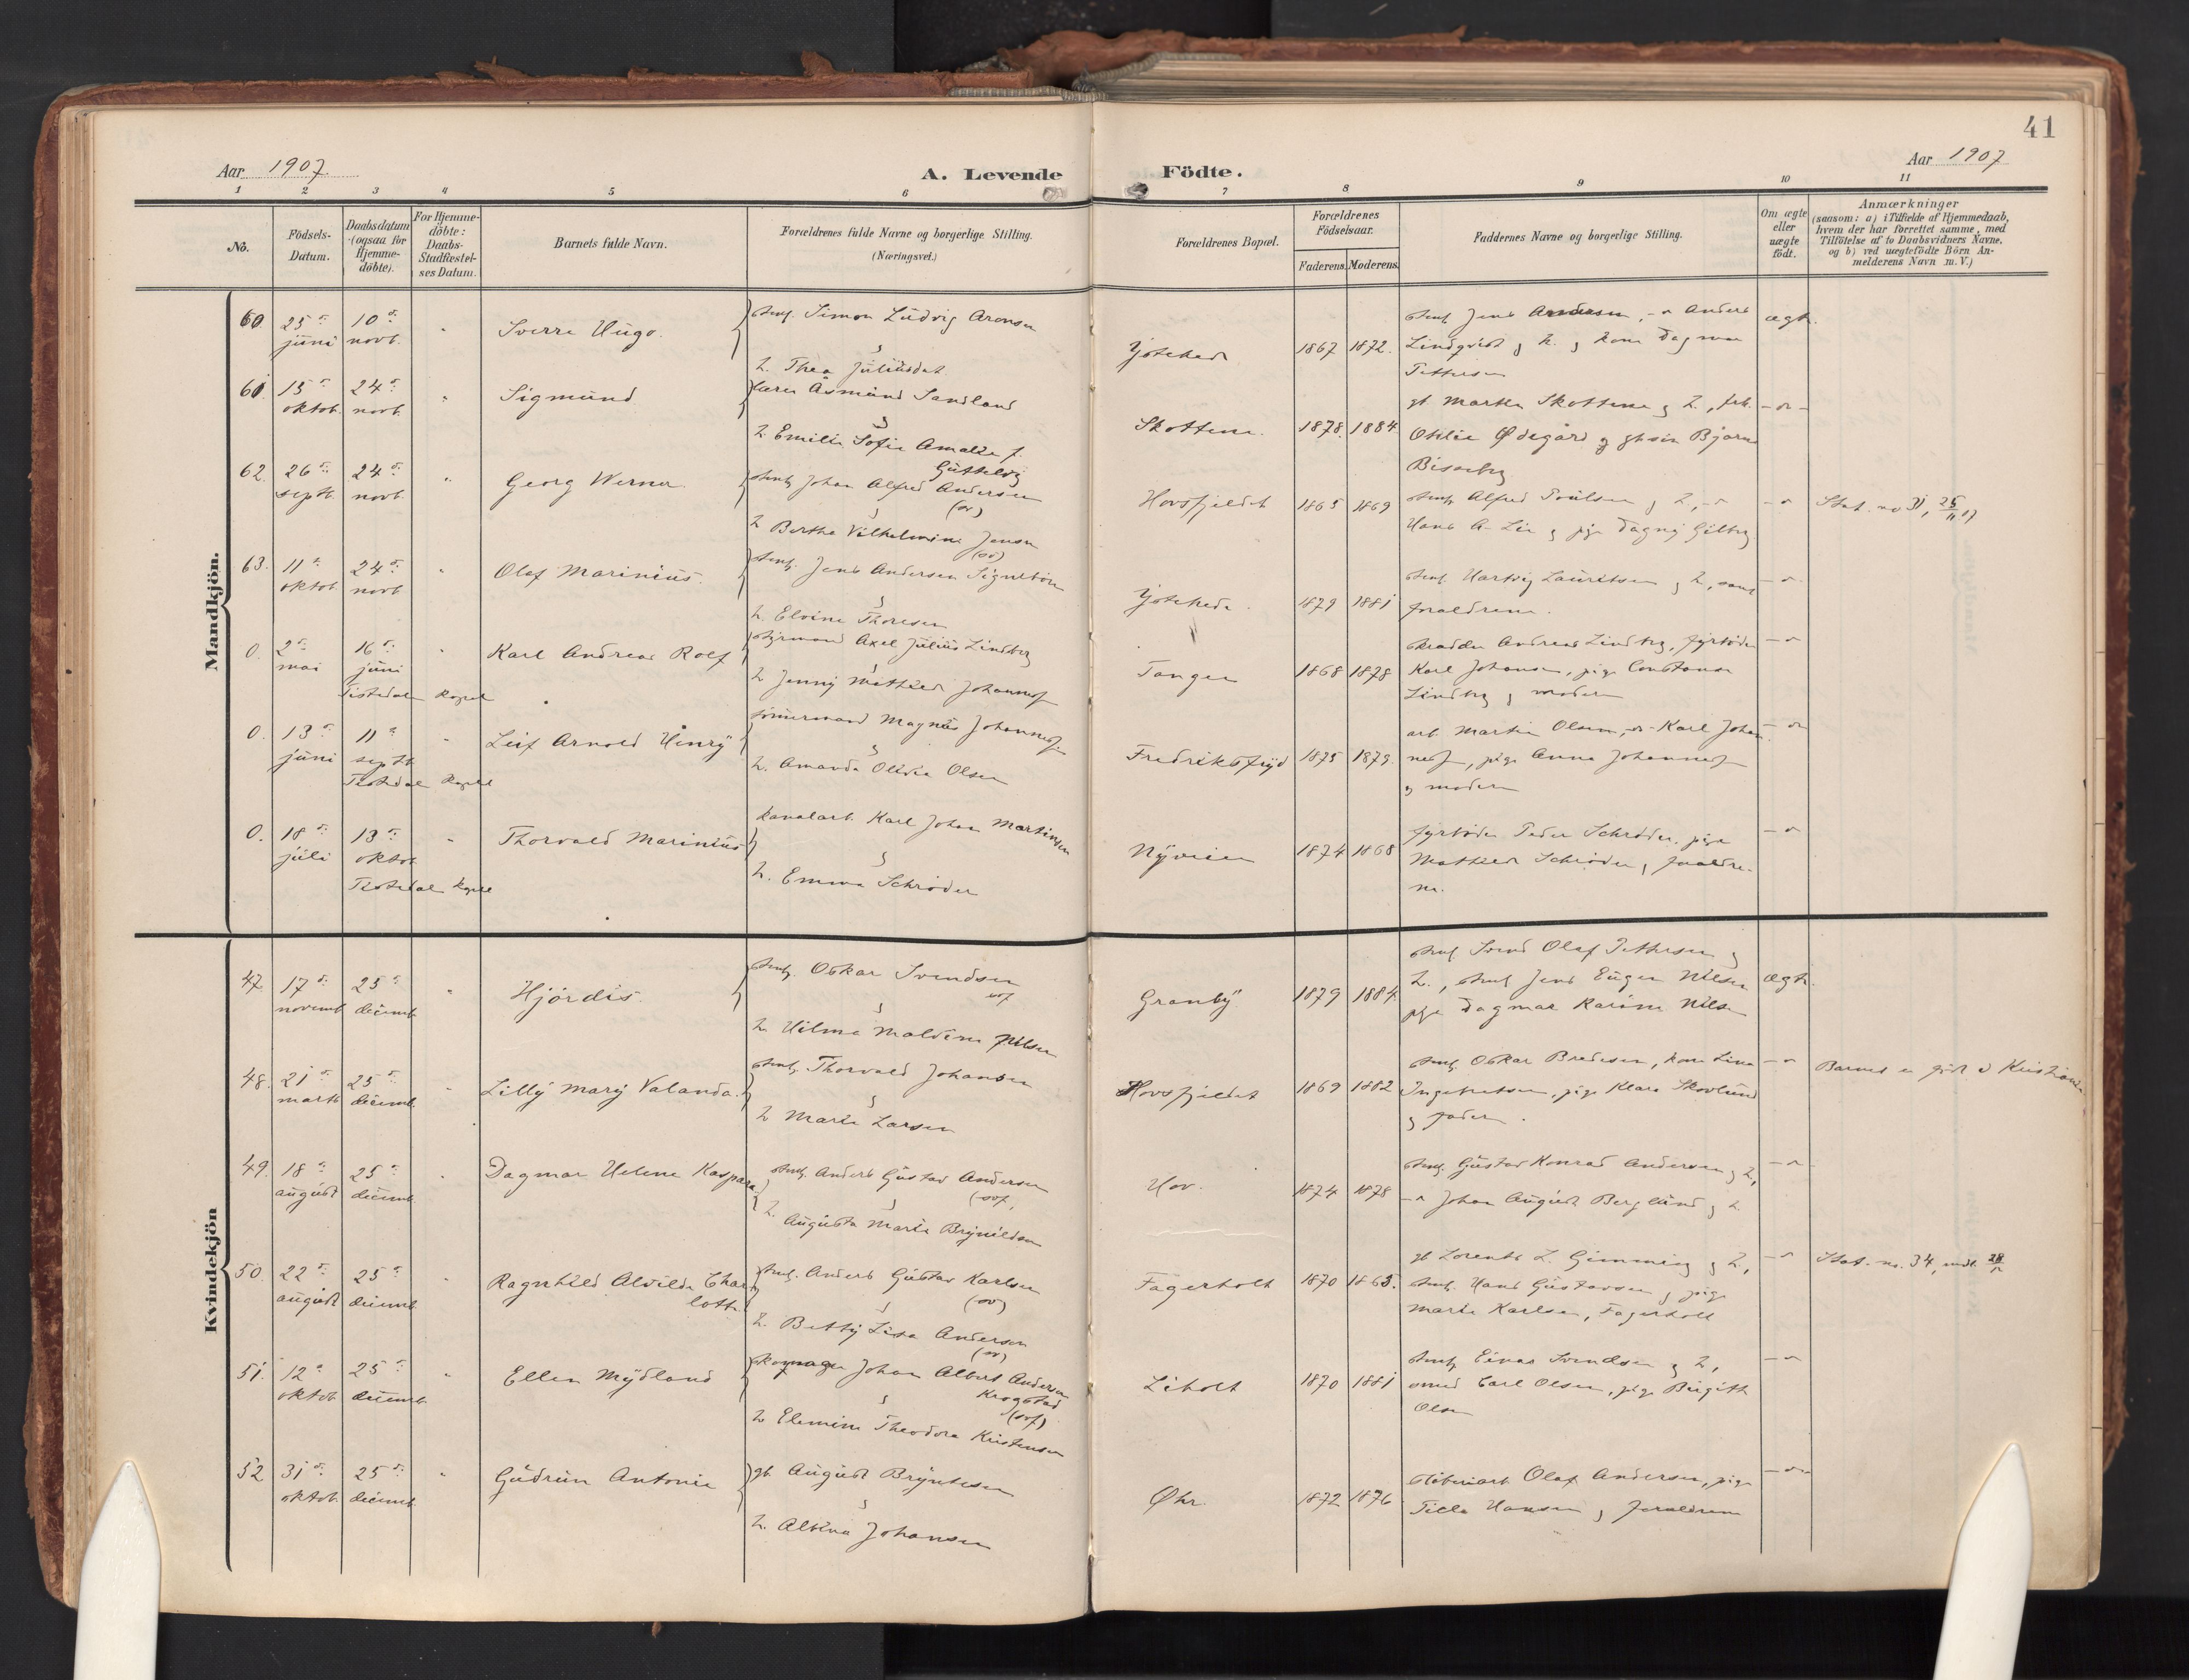 41
Aar 1907.
A. Levende
Födte.
Aar 1907
1 2 3 4 5 6 7 8 9 10 11
No.
Födsels-
Datum.
Daabsdatum
(ogsaa for
Hjemme-
döbte).
For Hjemme-
döbte:
Daabs-
Stadfæstel-
ses Datum.
Barnets fulde Navn.
Forældrenes fulde Navne og borgerlige Stilling.
(Næringsvei.)
Forældrenes Bopæl.
Forældrenes
Födselsaar.
Faderens. Moderens.
Faddernes Navne og borgerlige Stilling.
Om ægte
eller
uægte
födt.
Anmærkninger
(saasom: a) i Tilfælde af Hjemmedaab,
hvem der har forrettet samme, med
Tilföielse af to Daabsvidners Navne.
og b) ved uægtefödte Börn An-
melderens Navn m. V.)
Mandkjön.
60. 25 juni 10 novb.
Sverre Hugo.
Simon Ludvig Aronsen
h. Thea Juliusdat
1867 1872.
Jens Andersen, Anders
Lindqvist og h. og kone Dagmar
Pettersen
ægte.
61. 15 oktob. 24 novb.
Sigmund
lærer Åsmund Sandland
h. Emilie Sofie Amalie f.
Skottene. 1878. 1884
gb Martin Skottene og h., frk.
Othlie Ødegård og Bjarne
62. 26 septb. 24 novb.
Georg Werner
Johan Alfred Andersen
h. Bertha Vilhelmine Jensen
Hovsfjeldet 1865 1869
Alfred Poulsen og h.,
Hans A. Lie og pige Dagny Gilbrg
Stat. no 31, 25/11 07
63. 11 oktob. 24 novb.
Olaf Marinius.
Jens Andersen
h. Elvine Thoresen
1879 1881
Hartvig Lauritsen og h., samt
forældrene.
0. 2 mai 16 juni
Tistedal Kapel
Karl Andreas Rolf
styrmand Axel Julius Lindberg
h. Jenny Mathilde Johannesen
Tangen 1868 1878
skrædder Andreas Lindbrg, fyrböder
Karl Johansen, pige Constanse
Lindbrg og moderen
0. 13 juni 11 septb.
Tistedal Kapel
Leif Arnold Henry
tömmermand Magnus Johannes.
h. Amanda Olivia Olsen
Fredriksfryd 1875 1879.
arb. Martin Olsen, Karl Johan-
nes, pige Anna Johannes
og moderen
0. 18 juli 13 oktob.
Tistedal Kapel
Thorvald Marinius
kanalarb. Karl Johan Martinsen
h. Emma Schröder
Nyveien 1874 1868
fyrböder Peder Schröder, pige
Mathilde Schröder, foraldre-
ne.
Kvindekjön
47. 17 novemb. 25 decemb.
Hjördis.
Oskar Svendsen
h. Hilma Maldine Nilsen
Granby 1879 1884.
Svend Olaf Pettersen og
h., Jens Eugen Nilsen
pige Dagmar Karine Nilsen
ægte.
48. 21 marts 25 decemb.
Lilly Mary Valanda.
Thorvald Johansen
h. Marie Larsen
Hovsfjeldet 1869 1882
Oskar Bredesen, kone Lina
Ingebretsen, pige Klara Skovlund
og faderen.
Barnet er födt i Kristiania
49. 18 august 25 decemb.
Dagmar Helene Kaspara
Anders Gustav Andersen
h. Augusta Marie Brynildsen
Hov. 1874 1878
Gustav Konrad Andersen og h.,
Johan August Berglund og h
50. 22 august 25 decemb.
Ragnhild Alvilde Char-
lotte
Anders Gustav Karlsen
h. Betty Lisa Andersen
Fagerholt 1870 1865.
gb Lorents L. Gimming og h.,
Hans Gustavsen og pige
Marie Karlsen, Fagerholt
Stat. no. 34,
51. 12 oktob. 25 decemb.
Ellen Mydland
Johan Albert Andersen
Krogstad
h. Elemine Theodora Kristensen
Liholt 1870 1881
Einar Svendsen og h,
smed Carl Olsen, pige Birgitte
Olsen
52 31 oktob. 25 decemb.
Gudrun Antonie
gb August Bryntesen
h. Albina Johansen
Øhr. 1872 1876
Olaf Andersen, pige
Tilla Hansen og forældrene